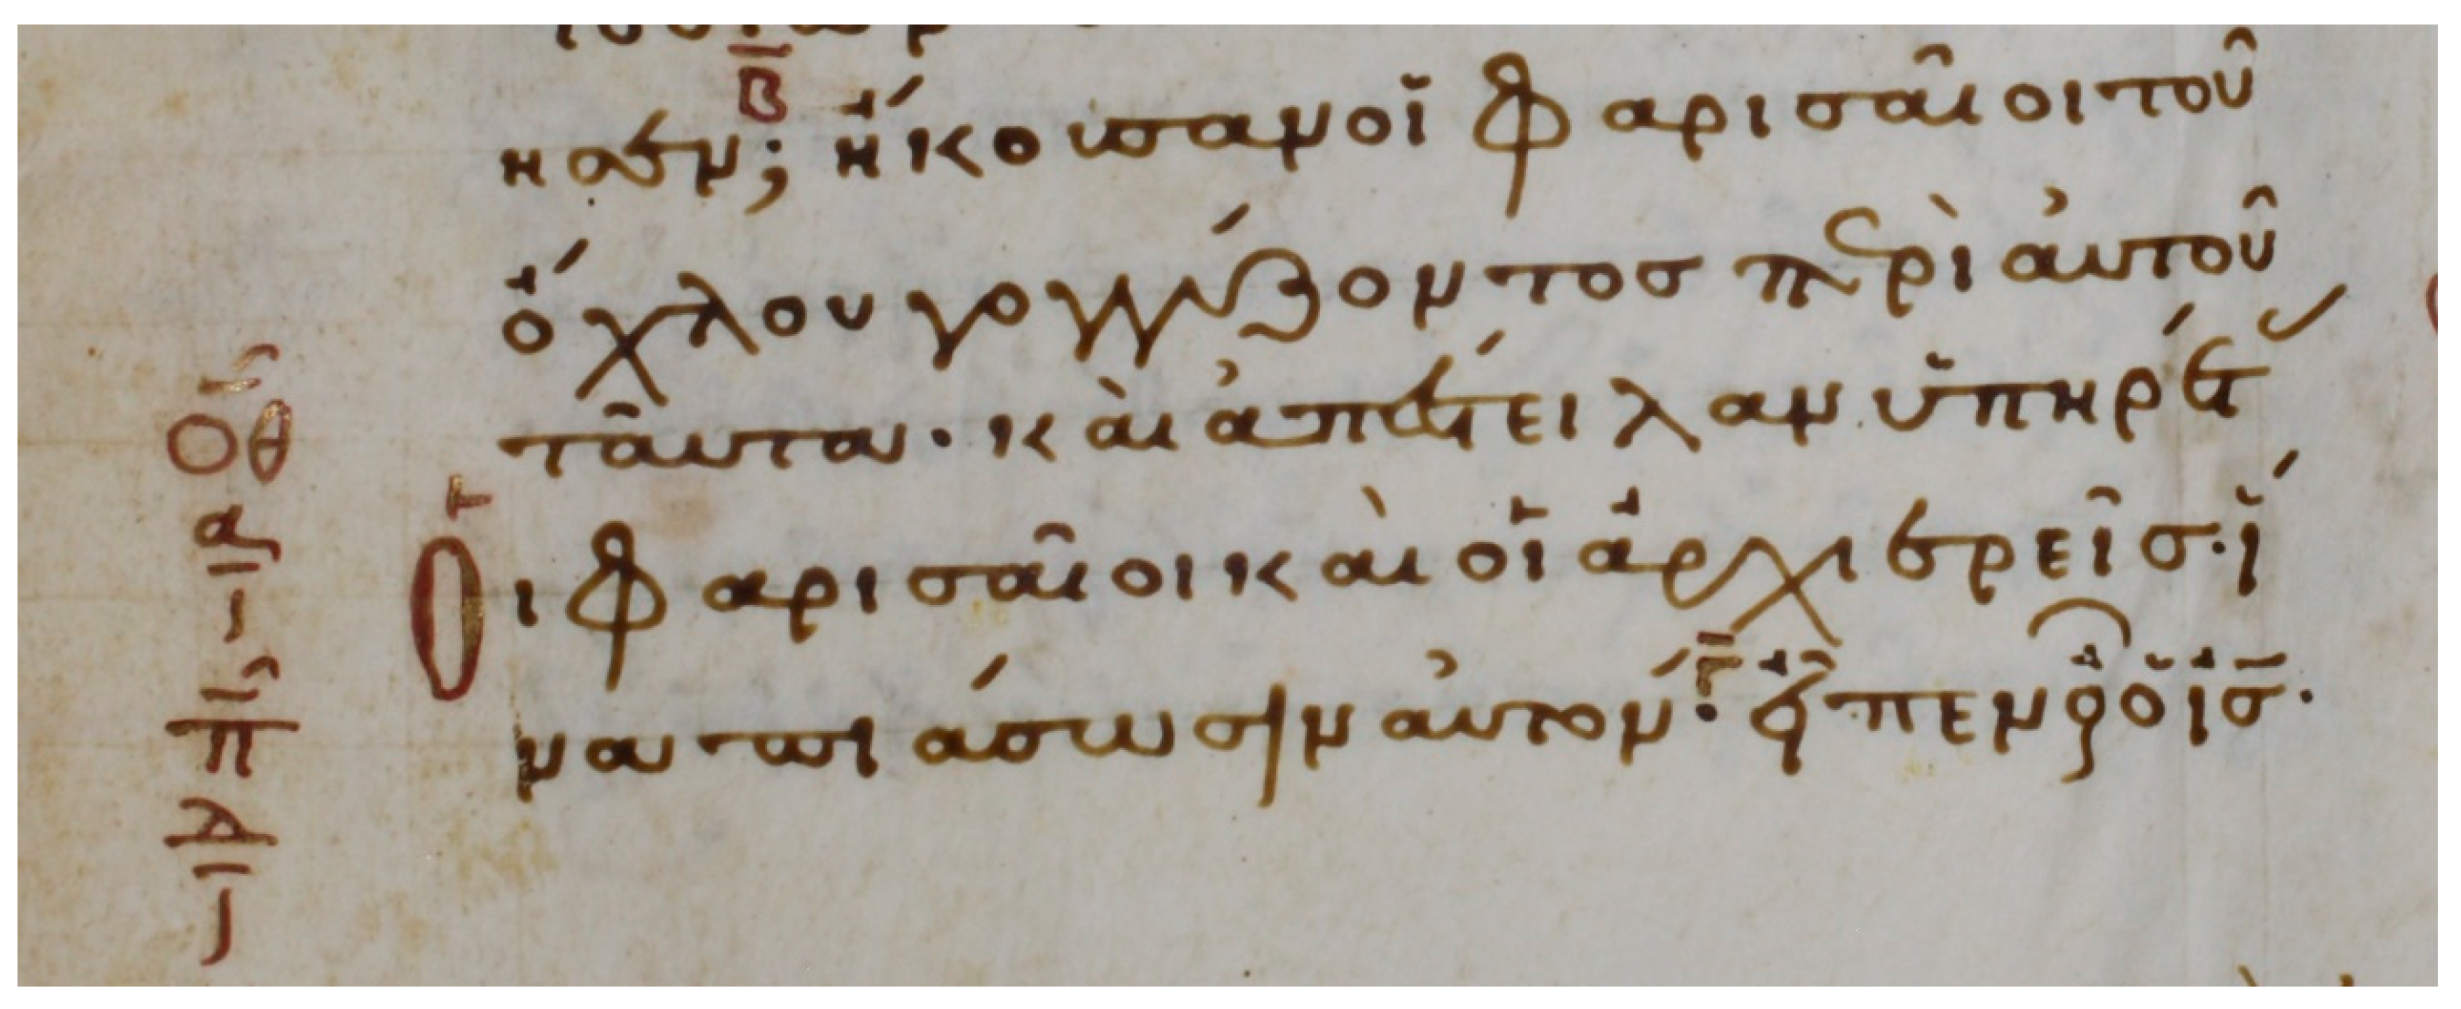 ησεν; ἤκουσαν οἱ Φαρισαῖοι τοῦ
ὄχλου γογγύζοντος περὶ αὐτοῦ
ταῦτα. καὶ ἀπέστειλαν ὑπηρέτ
Οἱ Φαρισαῖοι καὶ οἱ ἀρχιερεῖς. ἵ
να πιάσωσιν αὐτόν. εἶπεν οὖν ὁ ἰς.